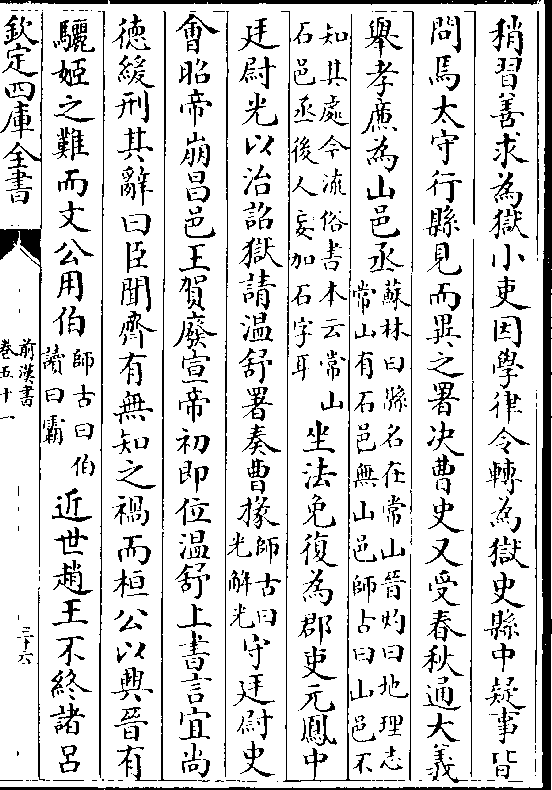 稍習善求為獄小吏因學律令轉為獄史縣中疑事皆
問焉太守行縣見而異之署決曹史又受春秋通大義
舉孝廉為山邑丞
蘇林曰縣名在常山晉灼曰地理志
常山有石邑無山邑師古曰山邑不
知其處今流俗書本云常山
石邑丞後人妄加石字耳
坐法免復為郡吏元鳳中
廷尉光以治詔獄請溫舒署奏曹掾
師古曰
光解光
守廷尉史
會昭帝崩昌邑王賀廢宣帝初即位溫舒上書言宜尚
徳緩刑其辭曰臣聞齊有無知之禍而桓公以興晉有
驪姬之難而文公用伯
師古曰伯
讀曰霸
近世趙王不終諸呂
欽定四庫全書
前漢書
卷五十一
三十六